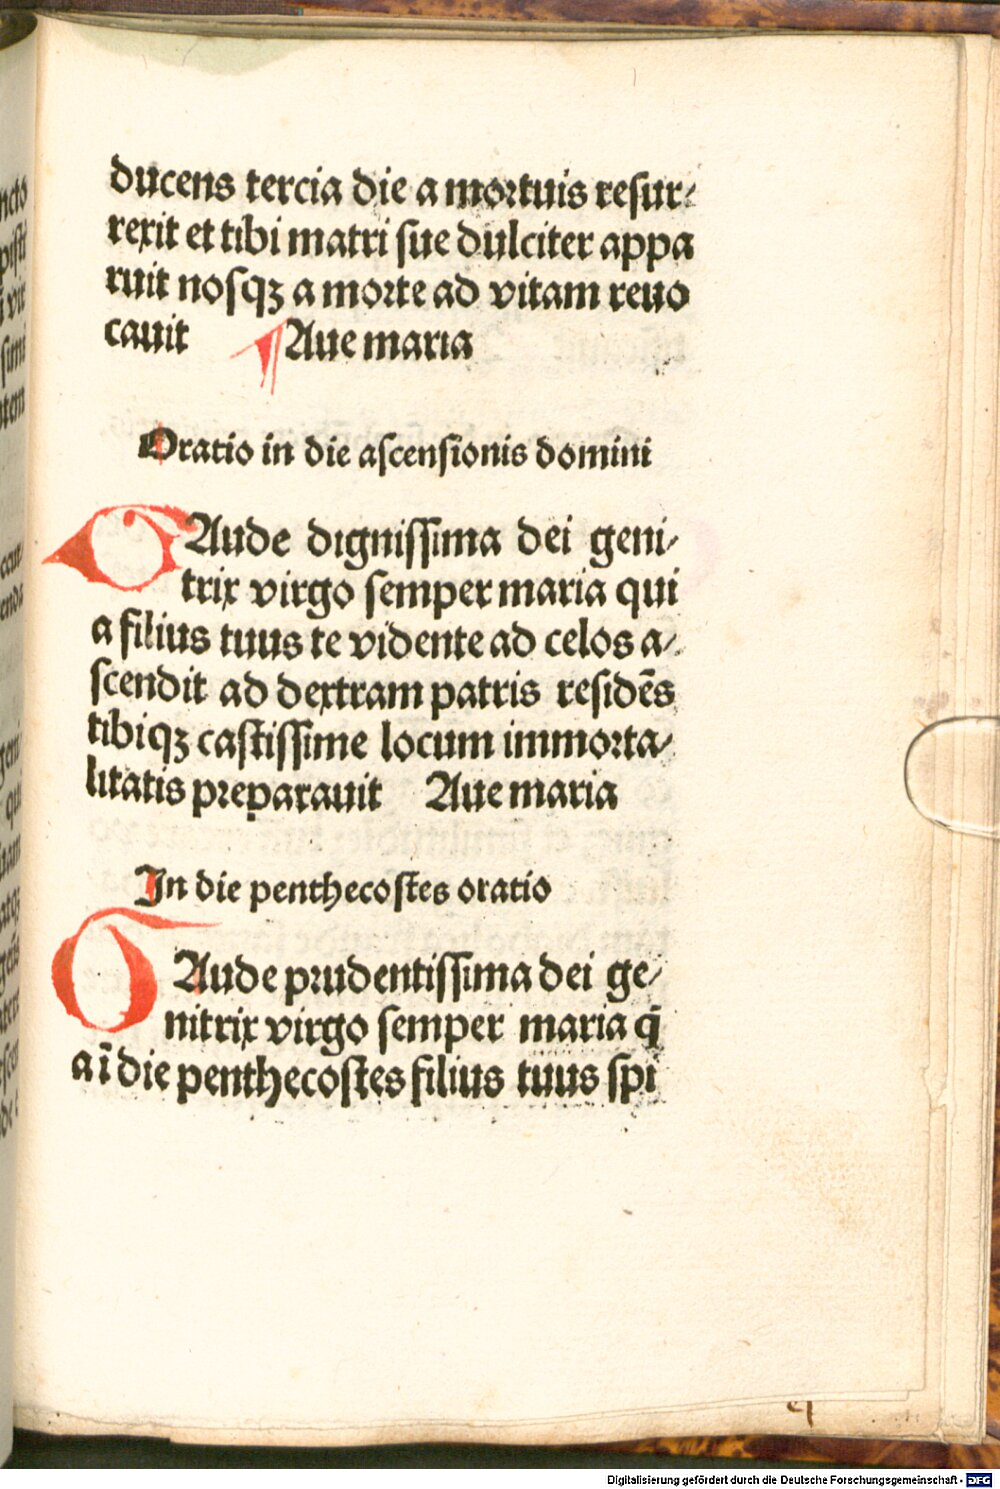 ducens tercia die a mortuis resur-
rexit et tibi matri sue dulciter appa
ruit nosqꝫ a morte ad vitam reuo
cauit ¶ Aue maria
Oratio in die ascensionis domini
GAude dignissima dei geni-
trix virgo semper maria qui
a filius tuus te vidente ad celos a-
scendit ad dextram patris residēs
tibiqꝫ castissime locum immorta-
litatis preparauit Aue maria
In die penthecostes oratio
GAude prudentissima dei ge-
nitrix virgo semper maria q̄
a ī die penthecostes filius tuus spi
Digitalisierung gefördert durch die Deutsche Forschungsgemeinschaft - DFG